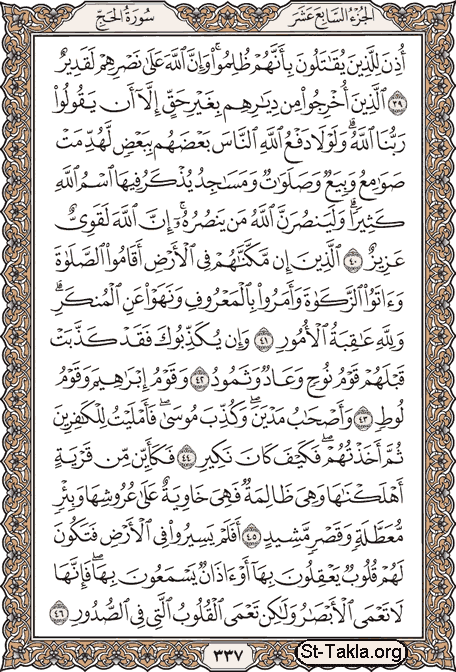 الجزء السابع عشر
سورة الحج
أُذِنَ لِلَّذِينَ يُقَٰتَلُونَ بِأَنَّهُمْ ظُلِمُوا۟ ۚ وَإِنَّ ٱللَّهَ عَلَىٰ نَصْرِهِمْ لَقَدِيرٌ
٣٩ ٱلَّذِينَ أُخْرِجُوا۟ مِن دِيَٰرِهِم بِغَيْرِ حَقٍّ إِلَّآ أَن يَقُولُوا۟
رَبُّنَا ٱللَّهُ ۗ وَلَوْلَا دَفْعُ ٱللَّهِ ٱلنَّاسَ بَعْضَهُم بِبَعْضٍ لَّهُدِّمَتْ
صَوَٰمِعُ وَبِيَعٌ وَصَلَوَٰتٌ وَمَسَٰجِدُ يُذْكَرُ فِيهَا ٱسْمُ ٱللَّهِ
كَثِيرًا ۗ وَلَيَنصُرَنَّ ٱللَّهُ مَن يَنصُرُهُۥٓ ۗ إِنَّ ٱللَّهَ لَقَوِىٌّ
عَزِيزٌ ٤٠ ٱلَّذِينَ إِن مَّكَّنَّٰهُمْ فِى ٱلْأَرْضِ أَقَامُوا۟ ٱلصَّلَوٰةَ
وَءَاتَوُا۟ ٱلزَّكَوٰةَ وَأَمَرُوا۟ بِٱلْمَعْرُوفِ وَنَهَوْا۟ عَنِ ٱلْمُنكَرِ ۗ
وَلِلَّهِ عَٰقِبَةُ ٱلْأُمُورِ ٤١ وَإِن يُكَذِّبُوكَ فَقَدْ كَذَّبَتْ
قَبْلَهُمْ قَوْمُ نُوحٍ وَعَادٌ وَثَمُودُ ٤٢ وَقَوْمُ إِبْرَٰهِيمَ وَقَوْمُ
لُوطٍ ٤٣ وَأَصْحَٰبُ مَدْيَنَ ۖ وَكُذِّبَ مُوسَىٰ فَأَمْلَيْتُ لِلْكَٰفِرِينَ
ثُمَّ أَخَذْتُهُمْ ۖ فَكَيْفَ كَانَ نَكِيرِ ٤٤ فَكَأَيِّن مِّن قَرْيَةٍ
أَهْلَكْنَٰهَا وَهِىَ ظَالِمَةٌ فَهِىَ خَاوِيَةٌ عَلَىٰ عُرُوشِهَا وَبِئْرٍ
مُّعَطَّلَةٍ وَقَصْرٍ مَّشِيدٍ ٤٥ أَفَلَمْ يَسِيرُوا۟ فِى ٱلْأَرْضِ فَتَكُونَ
لَهُمْ قُلُوبٌ يَعْقِلُونَ بِهَآ أَوْ ءَاذَانٌ يَسْمَعُونَ بِهَا ۖ فَإِنَّهَا
لَا تَعْمَى ٱلْأَبْصَٰرُ وَلَٰكِن تَعْمَى ٱلْقُلُوبُ ٱلَّتِى فِى ٱلصُّدُورِ ٤٦
٣٣٧
St-Takla.org